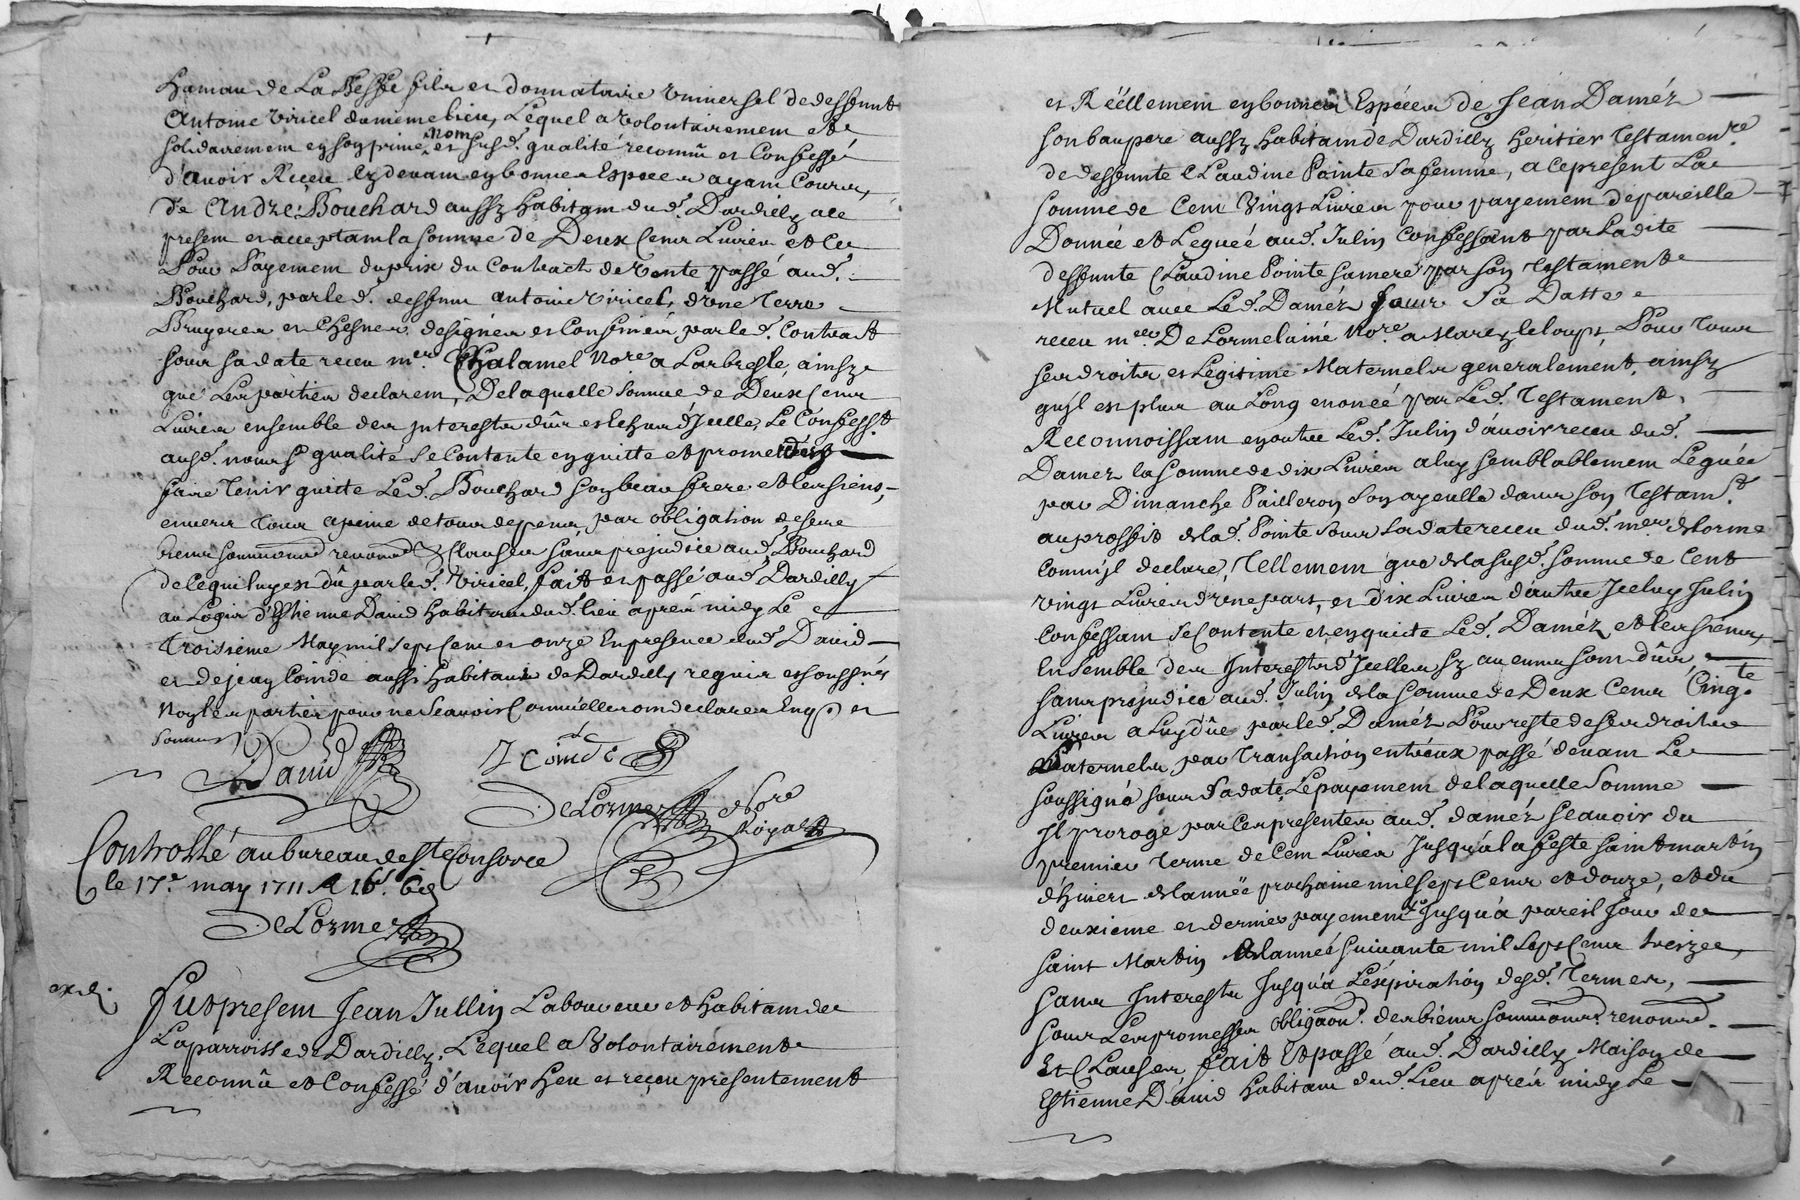 hamau de La Besse fils et donnataire universel de deffunt
Antoine Viricel du meme lieu, Lequel a volontairement et
solidairement en son privé nom et susd. qualité reconnu et Confessé
d'avoir Reçeu cy devant en bonnes Especes ayant Cours,
de André Bouchard aussy habitant dud. Dardilly a ce
present et acceptant la somme de Deux Cens Livres et Ce
Pour Payement du prix du Contract de vente passé aud.
Bouchard, par led. deffunt antoine Viricel, d'une Terre
Bruyeres et Chesnes designés et Confinés par led. Contract
sous sa date receu me. Chalamel Nore a Larbresle, ainsy
que Les parties declarent, De laquelle somme de Deux Cens
Livres ensemble des jnterests dûs et echus d'Jcelle, Le Confesst.
ausd. noms et qualité se Contente en quitte et promet
faire Tenir quitte Led. Bouchard son beau frere et les siens,
envers Tous a peine de tous depens, par obligation de ses
biens soummons renonons & Clauses sans prejudice aud. Bouchard
de ce qui luy est dû par led. Viricel, fait et passé aud. Dardilly
au Logis d'Estienne David habitant dud. lieu après midy Le
Troisieme May mil sept Cent et onze En presence dud. David
et de jean Coinde aussi habitant de Dardilly requis et soussnés
Non les parties pour ne Sçavoir Comme elles ont declaré Enqs et
sommés
David
J Coinde
DeLorme
Nore
Royal
Controllé au bureau de Ste Consorce
le 17e may 1711 R 16s 6d
DeLorme
exd.
Fut present Jean Jullin Laboureur et habitant de
La parroisse de Dardilly, Lequel a Volontairement
Reconnû et Confessé d'avoir heu et reçeu presentement
et Réellement en bonnes Especes de Jean Daméz
son beaupere aussy habitant de Dardilly heritier Testamenre
de deffunte Claudine Pointe Sa femme, a ce present La
somme de Cent Vingt Livres pour payement de pareille
Donnée et Leguée aud. Julin Confessant par Ladite
deffunte Claudine Pointe sa mere par son Testament
Mutuel avec Led. Daméz sous Sa Datte
receu me DeLorme lainé Nore a Marcy le loup, Pour Tous
ses droits et Legitime Maternels generalement, ainsy
qu'jl est plus au Long enoncé par Led. Testament,
Reconnoissant en outre Led. Julin d'avoir receu dud.
Damez la somme de dix Livres a luy semblablement Leguée
par Dimanche Pailleron son ayeulle dans son Testamt.
au proffit de lad. Pointe sous sa date receu dud. me delorme
Comm'jl declare, Tellement que de la susd. somme de Cent
vingt Livres d'une part, et dix Livres d'autre Jceluy Julin
Confessant se Contente et en quitte Led. Daméz, et les siens,
Ensemble des Interests d'Jcelles sy aucuns sont dûs,
sans prejudice aud. Julin de la somme de Deux Cens Cinqte
Livres a Luy dûe par led. Daméz Pour reste de ses droits
Paternels, par Transaction entr'eux passé devant Le
soussigné sous sa date, Le payement de laquelle Somme
Jl proroge par Ces presentes aud. daméz Sçavoir du
premier Terme de Cent Livres Jusqu'à la feste saint martin
d'hivert de l'année prochaine mil sept Cens et douze, et du
deuxieme et dernier payement Jusqu'a pareil Jour de
saint Martin de l'année suivante mil sept Cens treize,
sans Interests Jusqu'a L'expiration desd. Termes,
sous Les promesses obligaon. des biens soummons. renonons.
Et Clauses fait Et passé aud. Dardilly Maison de
Estienne David habitant dud. Lieu après midy Le